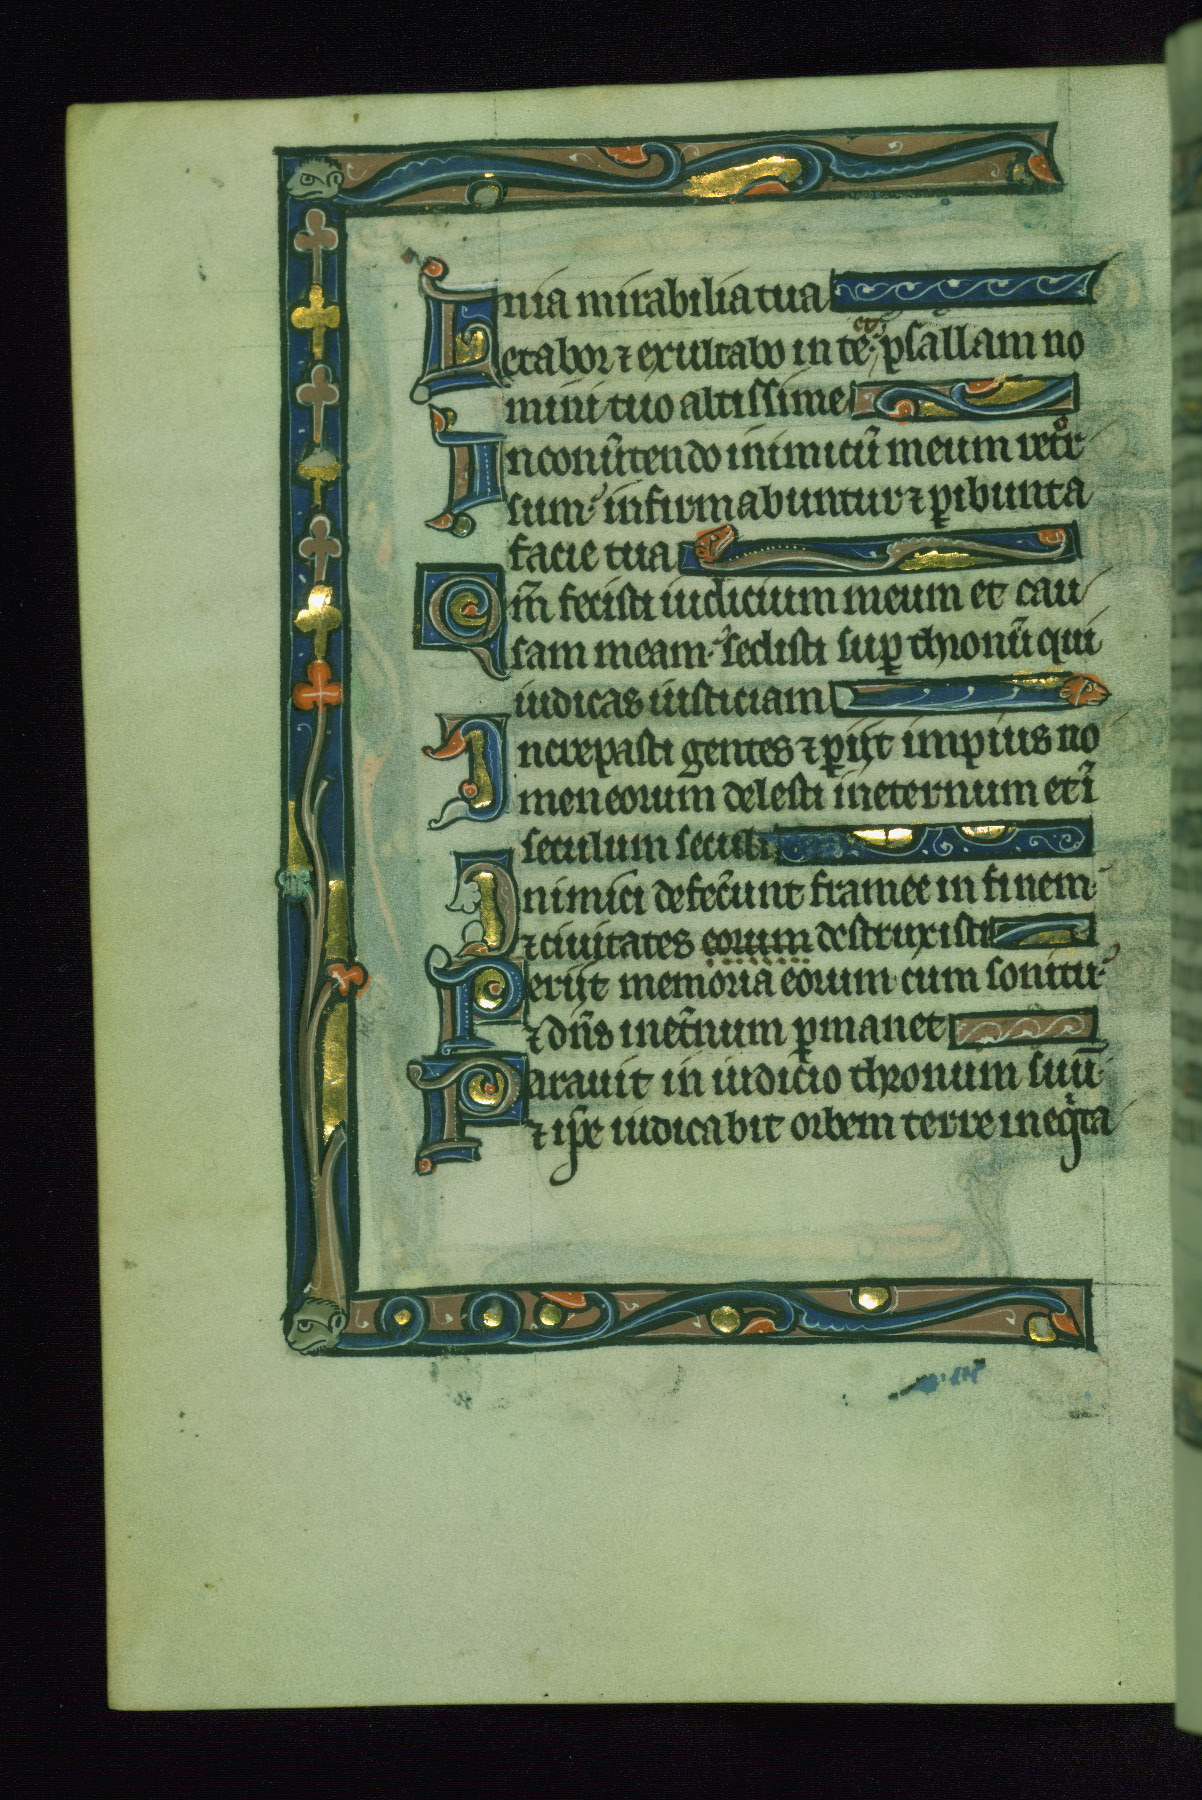 nia mirabilia tua
Letabor ⁊ exultabo in te et p̄sallam no
mini tuo altissime
In conu̅rtendo inimicū meum retr°r
sum infirmabuntur ⁊ ꝑibunt a
facie tua
Qm̄ fecisti iudicium meum et cau
sam meam sedisti suꝑ thronū qui
iudicas iusticiam
Increpasti gentes ⁊ ꝑijt impius no
men eorum delesti in eternum et ī
seculum seculi
Inimici defec̄unt framee in finem
⁊ ciuitates eorum destruxisti
Perijt memoria eorum cum sonitu
⁊ dn̄s in et̄num ꝑmanet
Parauit in iudicio thronum suū
⁊ ip̄e iudicabit orbem terre in eqͥta